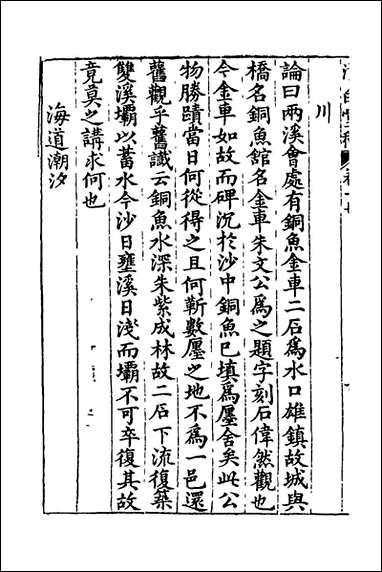 川
論曰兩溪會處有銅魚金車二石爲水口雄鎮故城與
橋名銅魚館名金車朱文公爲之題字刻石偉然觀也
今金車如故而碑沉於沙中銅魚已填爲廛舍矣此公
物勝蹟當日何從得之且何靳數廛之地不爲一邑還
舊觀乎舊讖云銅魚水深朱紫成林故二石下流復築
雙溪壩以蓄水今沙日壅溪日淺而壩不可卒復其故
竟莫之講求何也
海道潮汐